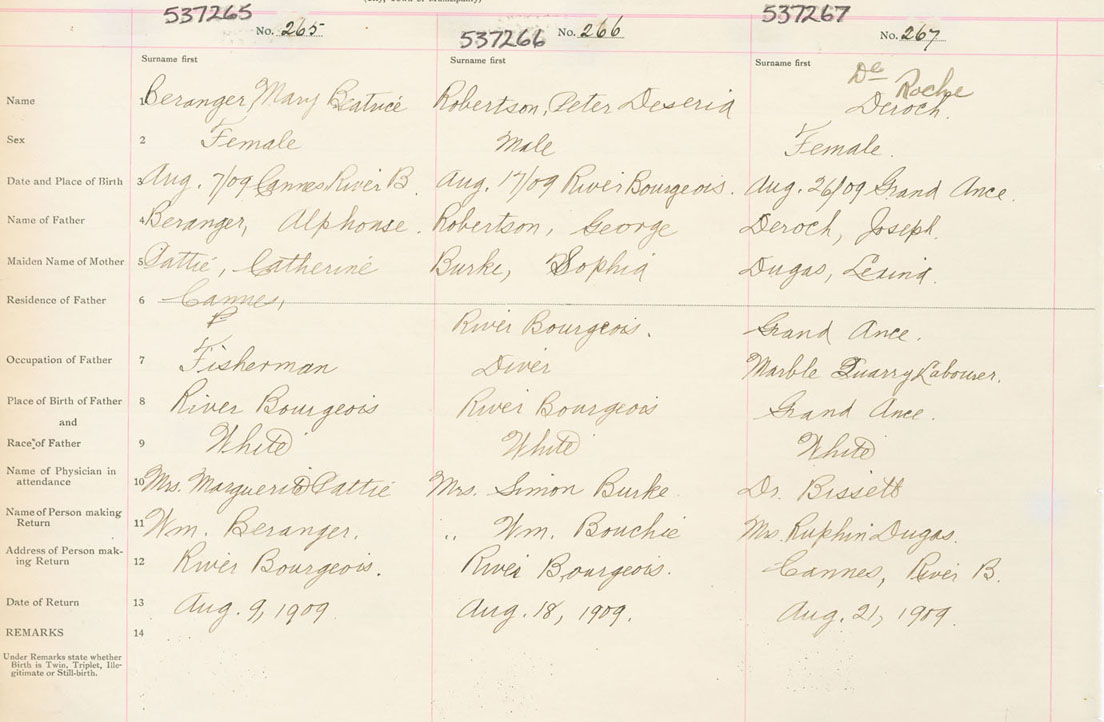 (City, Town or Municipality)
537265 537266 537267
No. 265 No. 266 No. 267
Surname first Surname first Surname first
De Roche
Name 1 Beranger, Mary Beatrice Robertson, Peter Deseria Deroch.
Sex 2 Female Male Female.
Date and Place of Birth 3 Aug. 7/09 Cannes River B. Aug. 17/09 River Bourgeois. Aug. 26/09 Grand Ance.
Name of Father 4 Beranger, Alphonse. Robertson, George Deroch, Joseph.
Maiden Name of Mother 5 Pattie, Catherine Burke, Sophia Dugas,
Residence of Father 6 Cannes,
River Bourgeois. Grand Ance.
Occupation of Father 7 Fisherman Diver Marble Quarry Labourer.
Place of Birth of Father 8 River Bourgeois River Bourgeois Grand Ance.
and
Race of Father 9 White White White
Name of Physician in
attendance 10 Mrs. Marguerite Pattie Mrs. Simon Burke Dr. Bissett
Name of Person making
Return 11 Wm. Beranger. " Wm. Bouchie Mrs. Ruphin Dugas.
Address of Person mak-
ing Return 12 River Bourgeois. River Bourgeois. Cannes, River B.
Date of Return 13 Aug. 9, 1909 Aug. 18, 1909. Aug. 21, 1909.
REMARKS 14
Under Remarks state whether
Birth is Twin, Triplet, Ille-
gitimate or Still-birth.